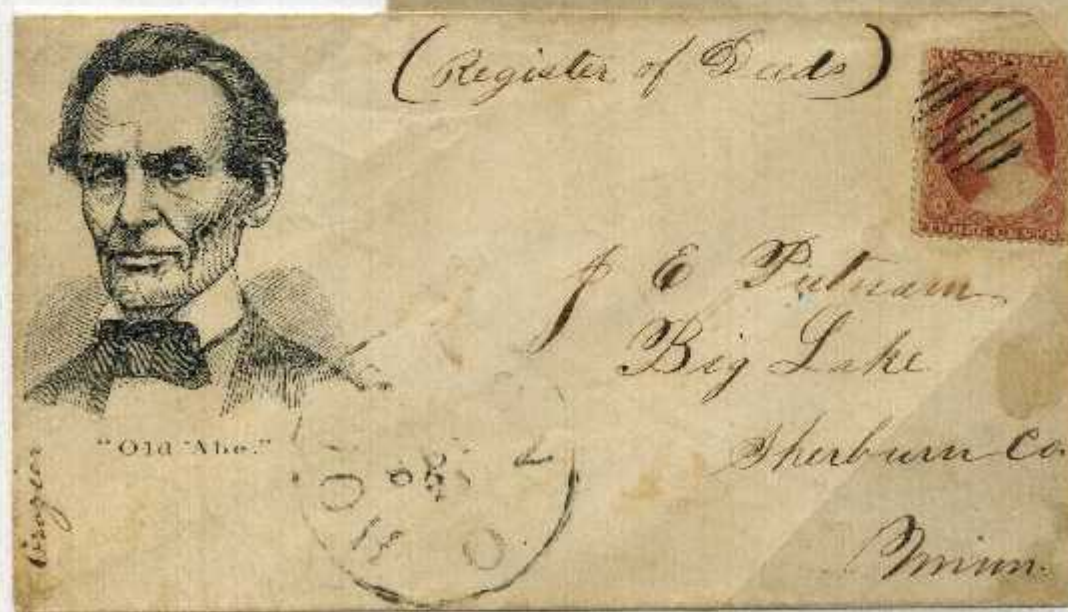 (Register of Deeds)
J E Putnam
Big Lake
Sherburn Co.
Minn.
"Old Abe."